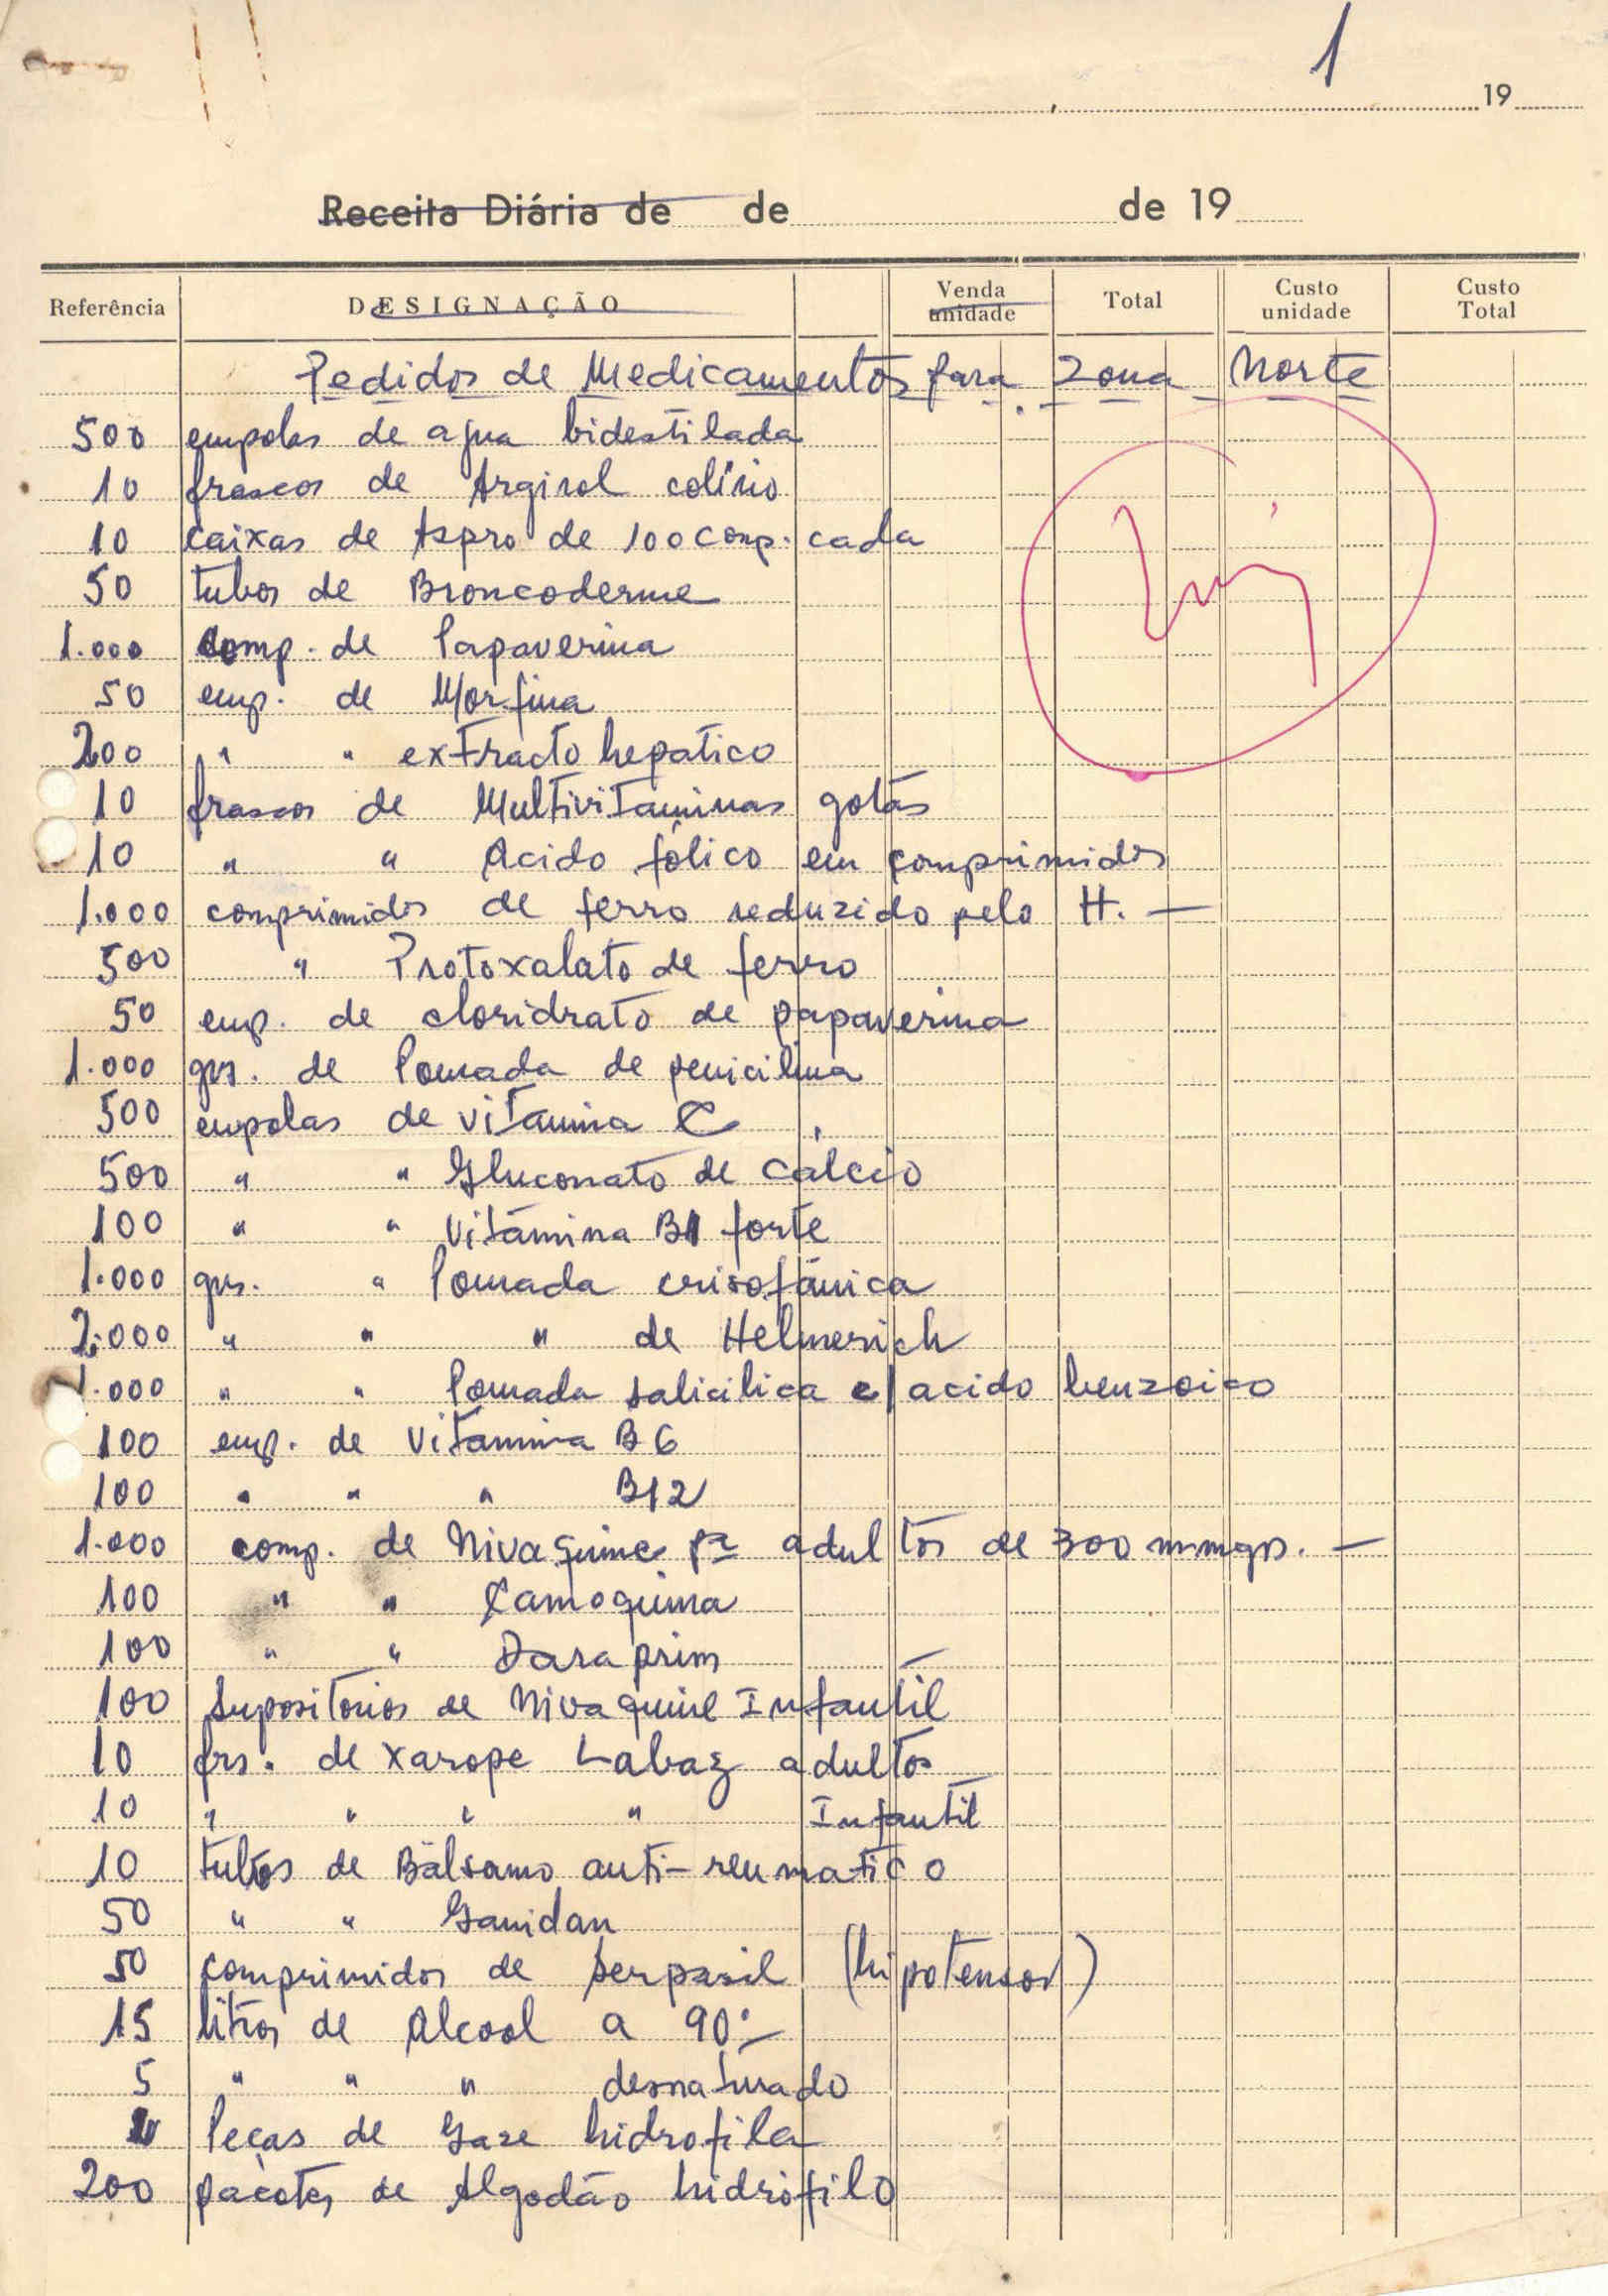 1
19
Receita Diária de de de 19
Referência DESIGNAÇÃO Venda unidade Total Custo unidade Custo Total
Pedidos de Medicamentos para Zona Norte
500 empolas de agua bidestilada
10 frascos de Argirol colírio
10 caixas de Aspro de 100 comp. cada
50 tubos de Broncoderme
1.000 comp. de Papaverina
50 emp. de Morfina
200 " " extracto hepatico
10 frascos de Multivitaminas gotas
10 " " Acido fólico em comprimidos
1.000 comprimidos de ferro reduzido pelo H. —
500 " Protoxalato de ferro
50 emp. de cloridrato de papaverina
1.000 grs. de Pomada de penicilina
500 empolas de vitamina C
500 " " Gluconato de Calcio
100 " " Vitamina B1 forte
1.000 grs. " Pomada crisofânica
2.000 " " " de Helmerich
1.000 " " Pomada salicilica c/ acido benzoico
100 emp. de Vitamina B6
100 " " " B12
1.000 comp. de Nivaquine pª adultos de 300 m.mgrs. —
100 " " Camoquina
100 " " Daraprim
100 Supositorios de Nivaquine Infantil
10 frs. de Xarope Labaz adultos
10 " " " " Infantil
10 tubos de Bálsamo anti-reumatico
50 " " Ganidan
50 comprimidos de Serpasil (hipotensor)
15 litros de Alcool a 90º
5 " " " desnaturado
Peças de Gaze hidrofila
200 pacotes de Algodão hidrófilo